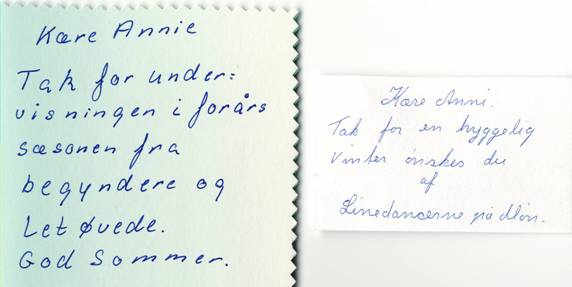 Kære Annie
Tak for under:
visningen i forårs
sæsonen fra
begyndere og
Let øvede.
God Sommer.
Kære Anni.
Tak for en hyggelig
vinter ønskes du
af
Linedancerne på Møn.